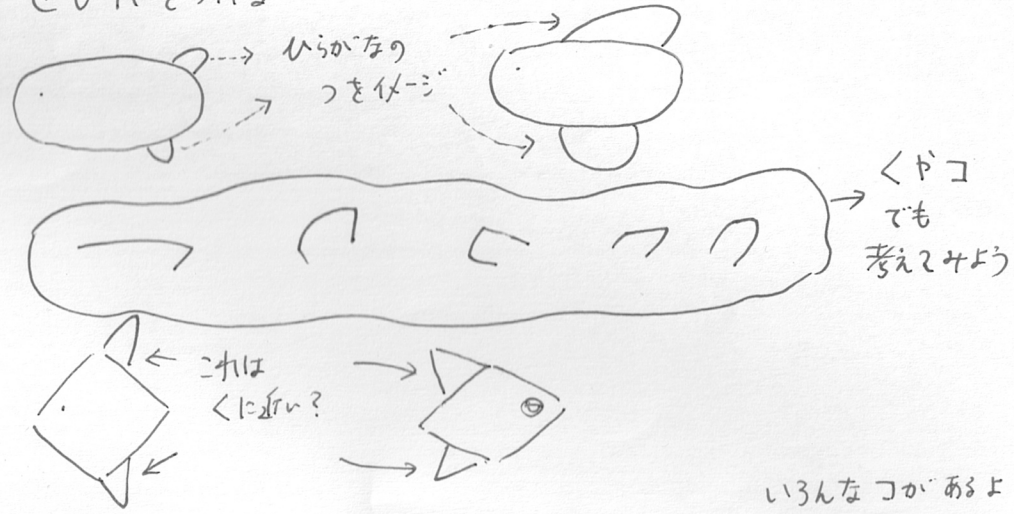 ひらがなの
つをイメージ
くやコ
でも
考えてみよう
これは
くに近い?
いろんなコがあるよ